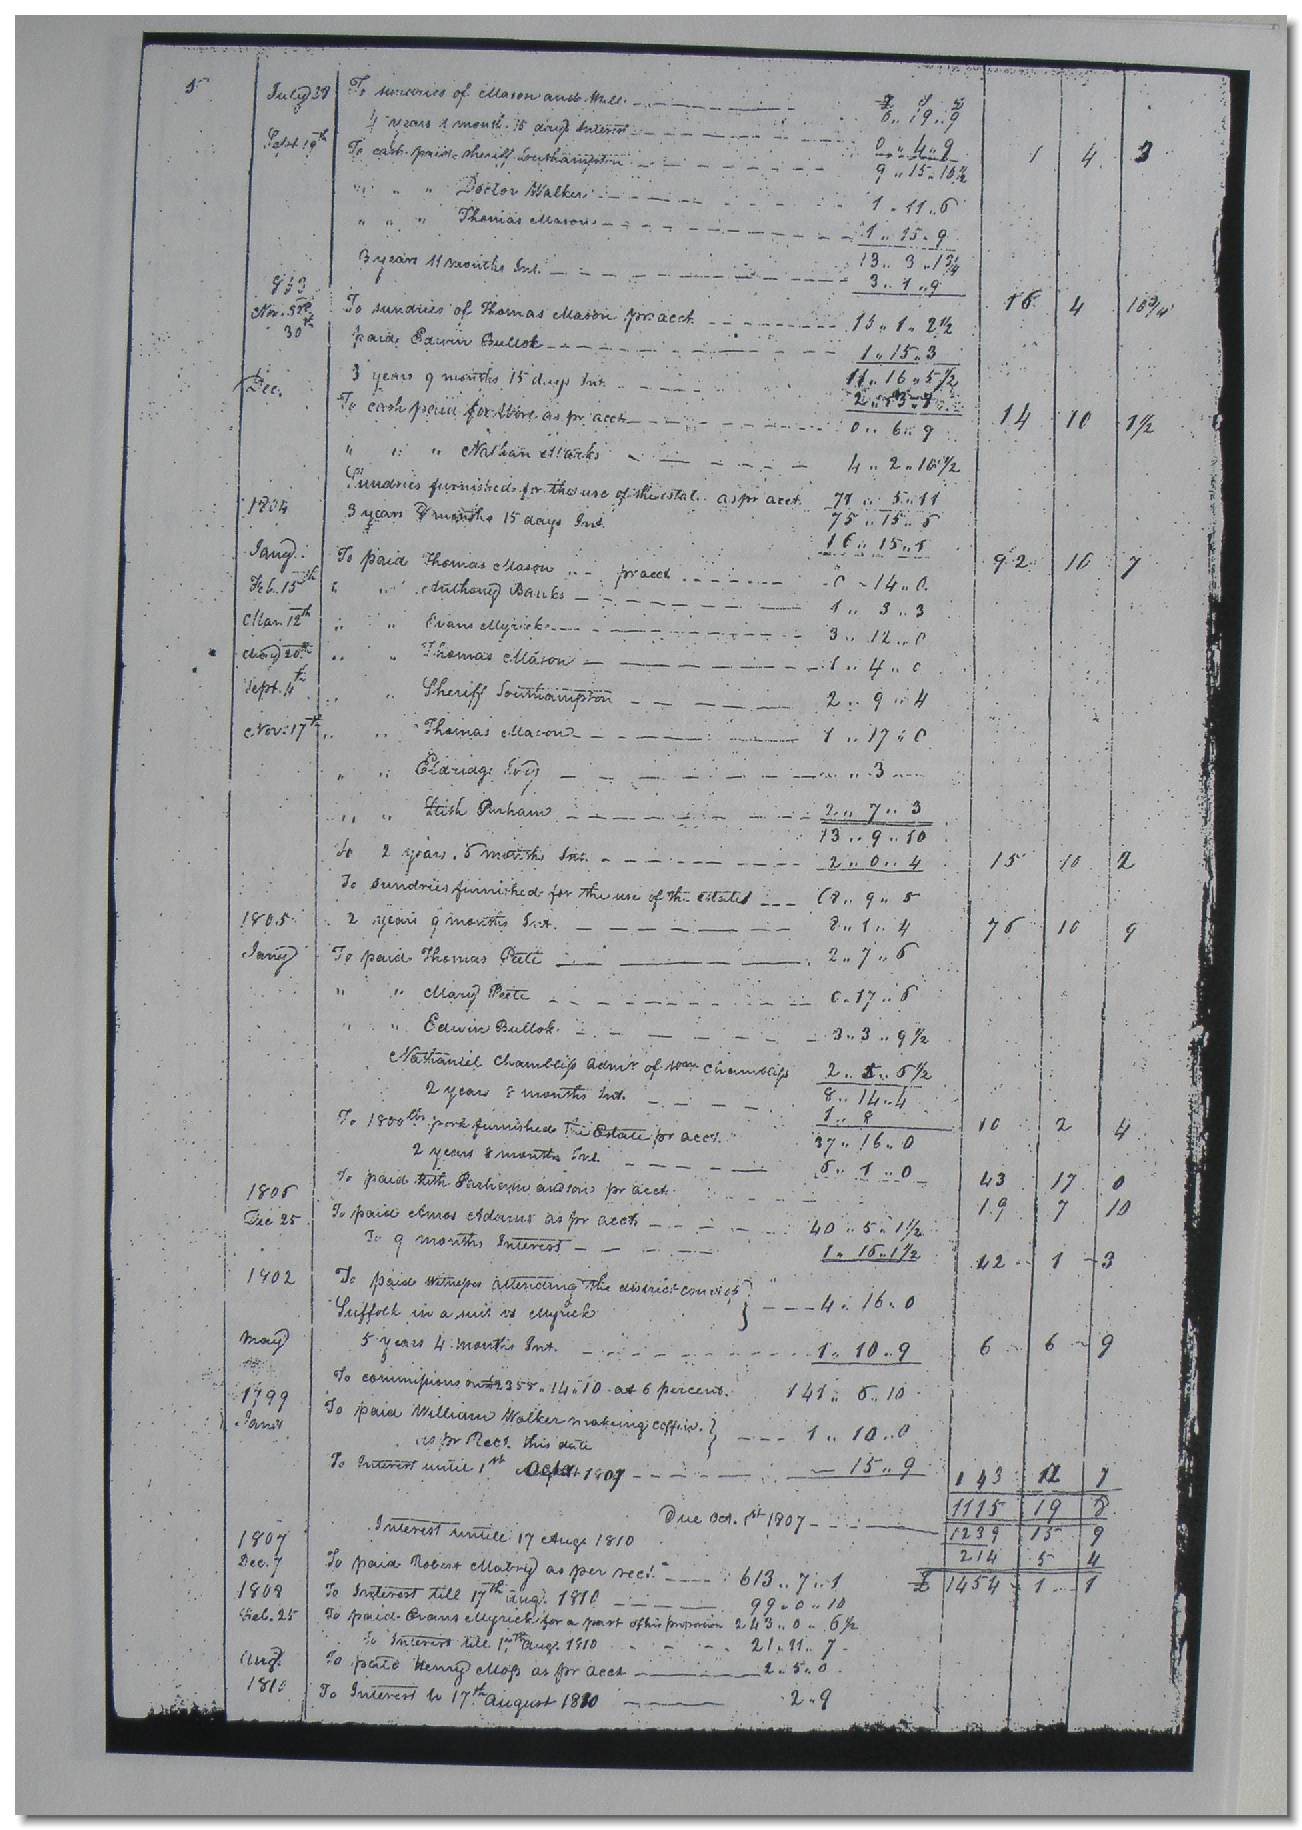 July 30 To sundries of Mason and Mill 0 .. 19 .. 9
4 years 1 month 15 days Interest 0 .. 4 .. 9 1 4 3
Sept. 19th To cash paid Sheriff Southampton 9 .. 15 .. 10½
" " " Doctor Walker 1 .. 11 .. 6
" " " Thomas Mason 1 .. 15 .. 9
13 .. 3 .. 1¾
3 years 11 months Int. 3 .. 1 .. 9 16 4 10¾
803
Nov. To sundries of Thomas Mason pr acct 1 .. 2½
30th paid Edwin Bullok 1 .. 15 .. 3
3 years 9 months 15 days Int. 11 .. 16 .. 5½
14 10 1½
Dec. To cash paid for as pr acct 0 .. 6 .. 9
" " " Nathan Marks 4 .. 2 .. 10½
Sundries furnished for the use of the estat. as pr acct 71 .. 5 .. 11
1804 3 years months 15 days Int. 75 .. 15 .. 6
16 .. 15 .. 1 92 10 7
Jany. To paid Thomas Mason .. pr acct 0 .. 14 .. 0
Feb. 15th " " Anthony Banks 1 .. 3 .. 3
Mar. 12th " " Evans Myrick 3 .. 12 .. 0
May 20th " " Thomas Mason 1 .. 4 .. 0
Sept. 4th " " Sheriff Southampton 2 .. 9 .. 4
Nov. 17th " " Thomas Mason 1 .. 17 .. 0
" " Eldridge Ivey .. 3
" " Stith Parham 2 .. 7 .. 3
13 .. 9 .. 10
To 2 years 6 months Int. 2 .. 0 .. 4 15 10 2
To sundries furnished for the use of the estate 68 .. 9 .. 5
1805 2 years 9 months Int. 8 .. 1 .. 4 76 10 9
Jany To paid Thomas Peete 2 .. 7 .. 6
" " Mary Peete 0 .. 17 .. 6
" " Edwin Bullok 3 .. 3 .. 9½
Nathaniel Chambliss admr of Wm Chambliss 2 .. 5 .. 6½
2 years 8 months Int. 8 .. 14 .. 4
1 .. 8 10 2 4
To 1800 lbs pork furnished the Estate pr acct. 37 .. 16 .. 0
2 years 8 months Int. 6 .. 1 .. 0 43 17 0
To paid Stith Parham and sons pr acct 19 7 10
1806
Dec 25 To paid Amos Adams as pr acct 40 .. 5 .. 1½
To 9 months Interest 1 .. 16 .. 1½ 42 1 3
1802 To paid witnesses attending the district court of
Suffolk in a suit vs Myrick 4 .. 16 .. 0
May 5 years 4 months Int. 1 .. 10 .. 9 6 6 9
To commissions on £2358 .. 14 .. 10 at 6 percent. 141 .. 6 .. 10
1799 To paid William Walker making coffin
Jany as pr Rect. this date 1 .. 10 .. 0
To Interest until 1st Octr 1807 15 .. 9 143 12 7
1115 19 8
Due Oct. 1st 1807 1239 15 9
Interest untill 17 Augt 1810 214 5 4
1807
Dec. 7 To paid Robert Mabry as per rect. 613 .. 7 .. 1 £ 1454 1 1
1808 To Interest till 17th Augt 1810 99 .. 0 .. 10
Feb. 25 To paid Evans Myrick for a part of his proporion 243 .. 0 .. 6½
To Interest till 17th Augt 1810 21 .. 11 .. 7
Augt. To paid Henry Moss as pr acct 2 .. 5 .. 0
1810 To Interest to 17th August 1810 2 .. 9